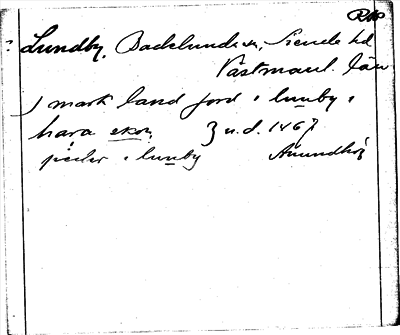 Lundby, Badelunda sn, Siende hd
Västmanl. län
J mark land jord i lunby i
hära skoj. 3 u.d. 1467
i lunby Anundhög